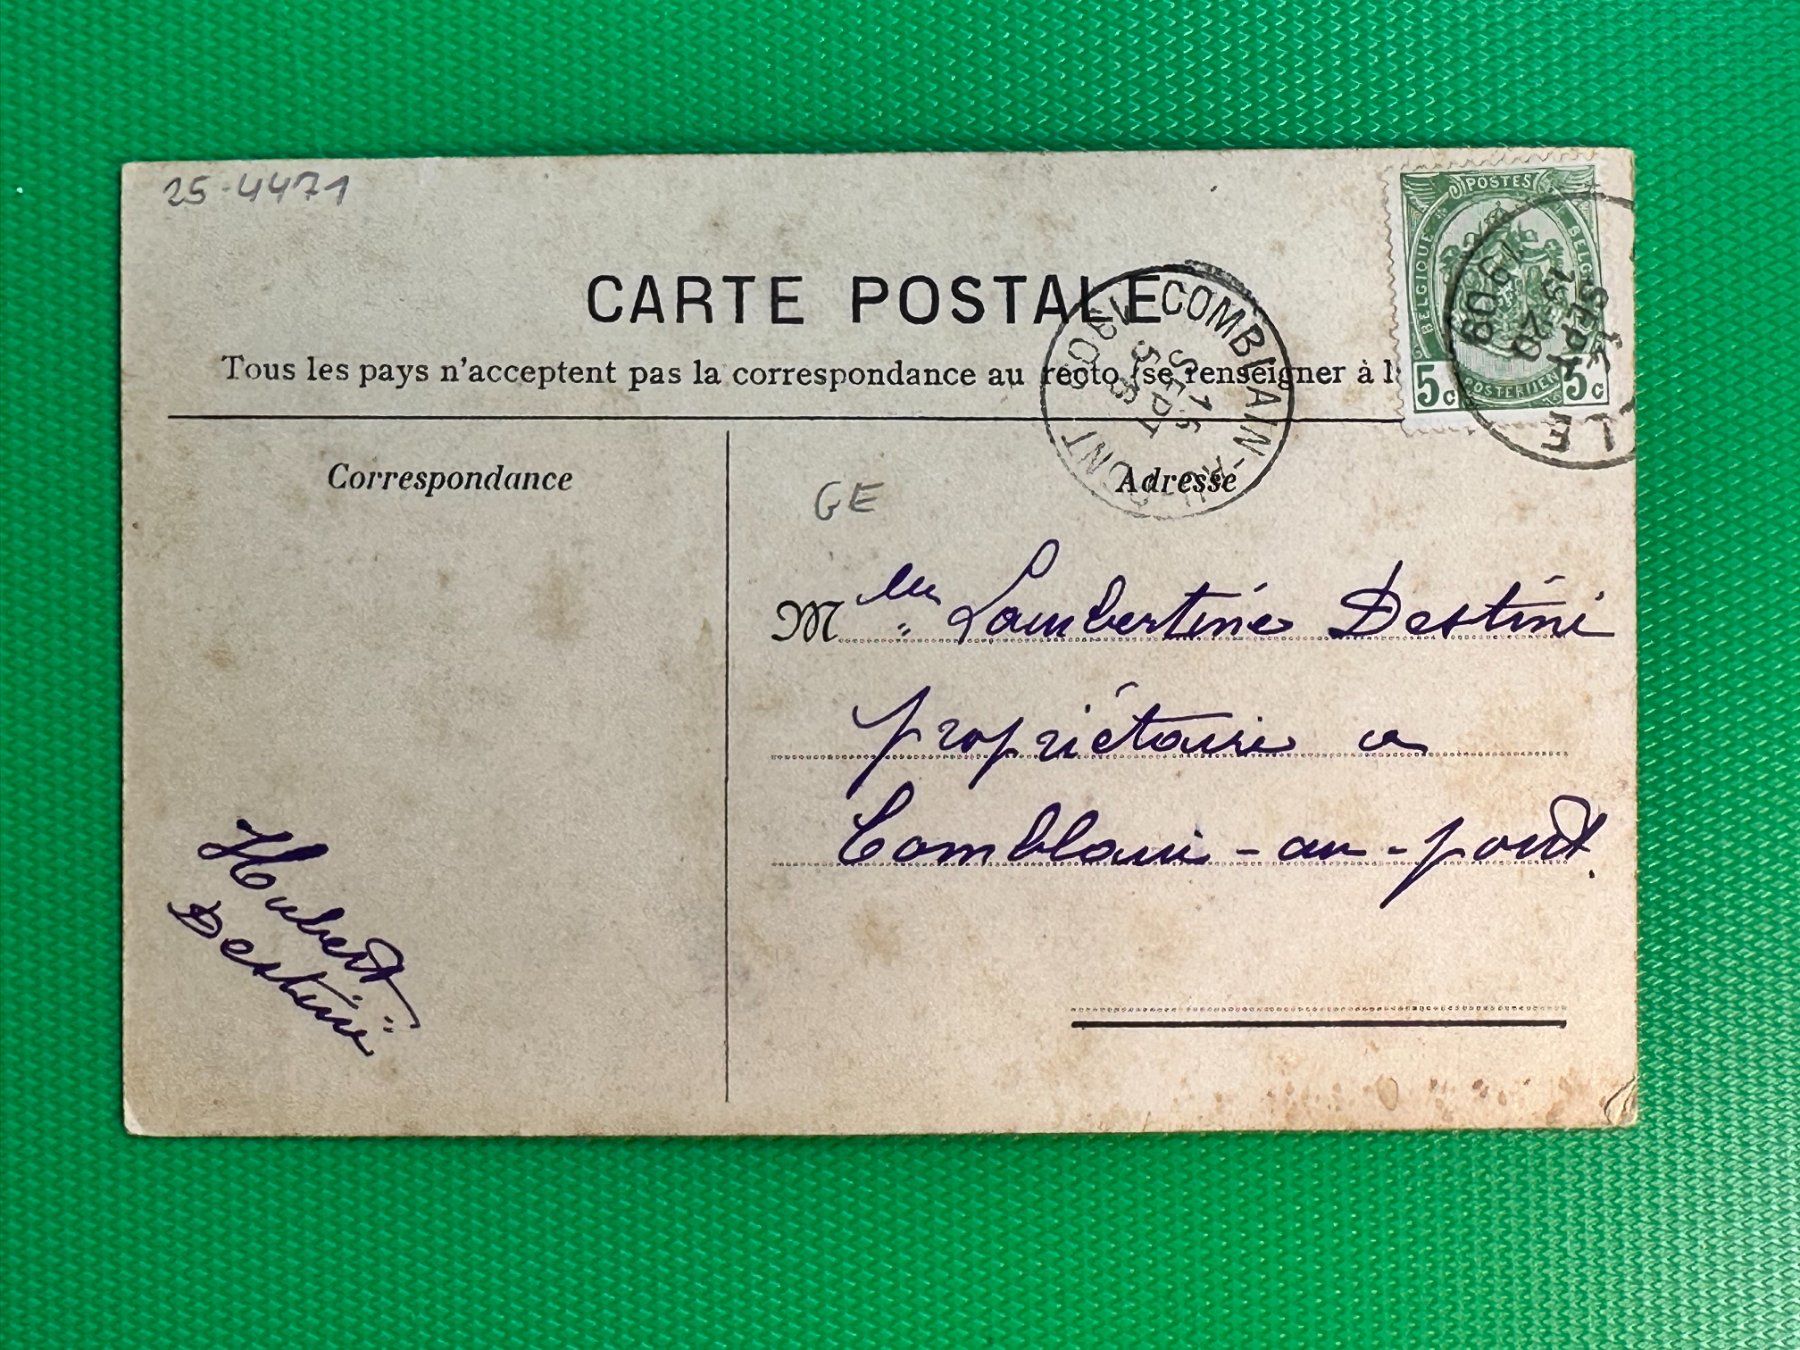 25-4471
CARTE POSTALE
Tous les pays n'acceptent pas la correspondance au recto (se renseigner à l
POSTES
BELGIQUE
5c 5c
POSTERIJEN
COMBLAIN-AU-PONT
15
SEPT
1908
SEPT
20
1908
LLE
Correspondance
Adresse
GE
Mlle Lambertine Destiné
propriétaire a
Comblain-au-pont.
Hubert
Destiné